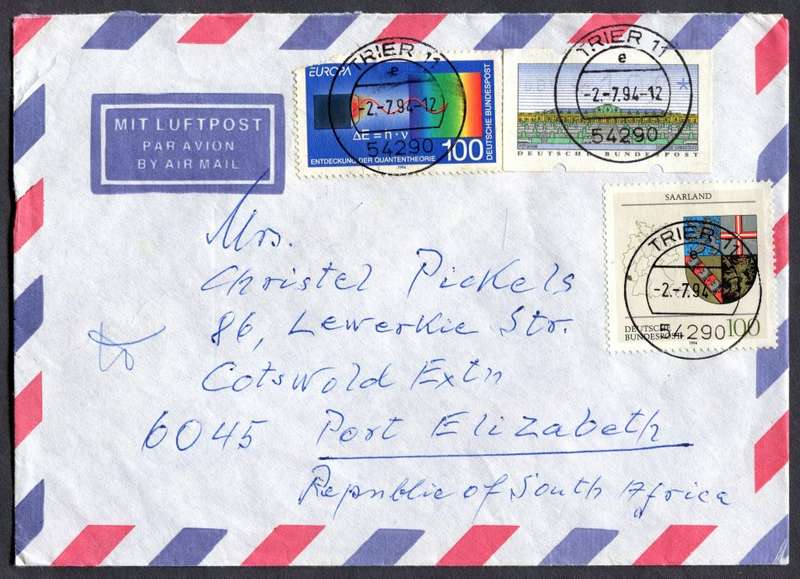 MIT LUFTPOST
PAR AVION
BY AIR MAIL
EUROPA
ΔE = h · ν
ENTDECKUNG DER QUANTENTHEORIE
100
DEUTSCHE BUNDESPOST
1994
TRIER 11
e
-2.-7.94-12
54290
DEUTSCHE BUNDESPOST
TRIER 11
e
-2.-7.94-12
54290
SAARLAND
DEUTSCHE
BUNDESPOST
100
1994
TRIER 11
-2.-7.94
54290
Mrs.
Christel Pickels
86, Lewerkie Str.
to
Cotswold Extn
6045 Port Elizabeth
Republic of South Africa